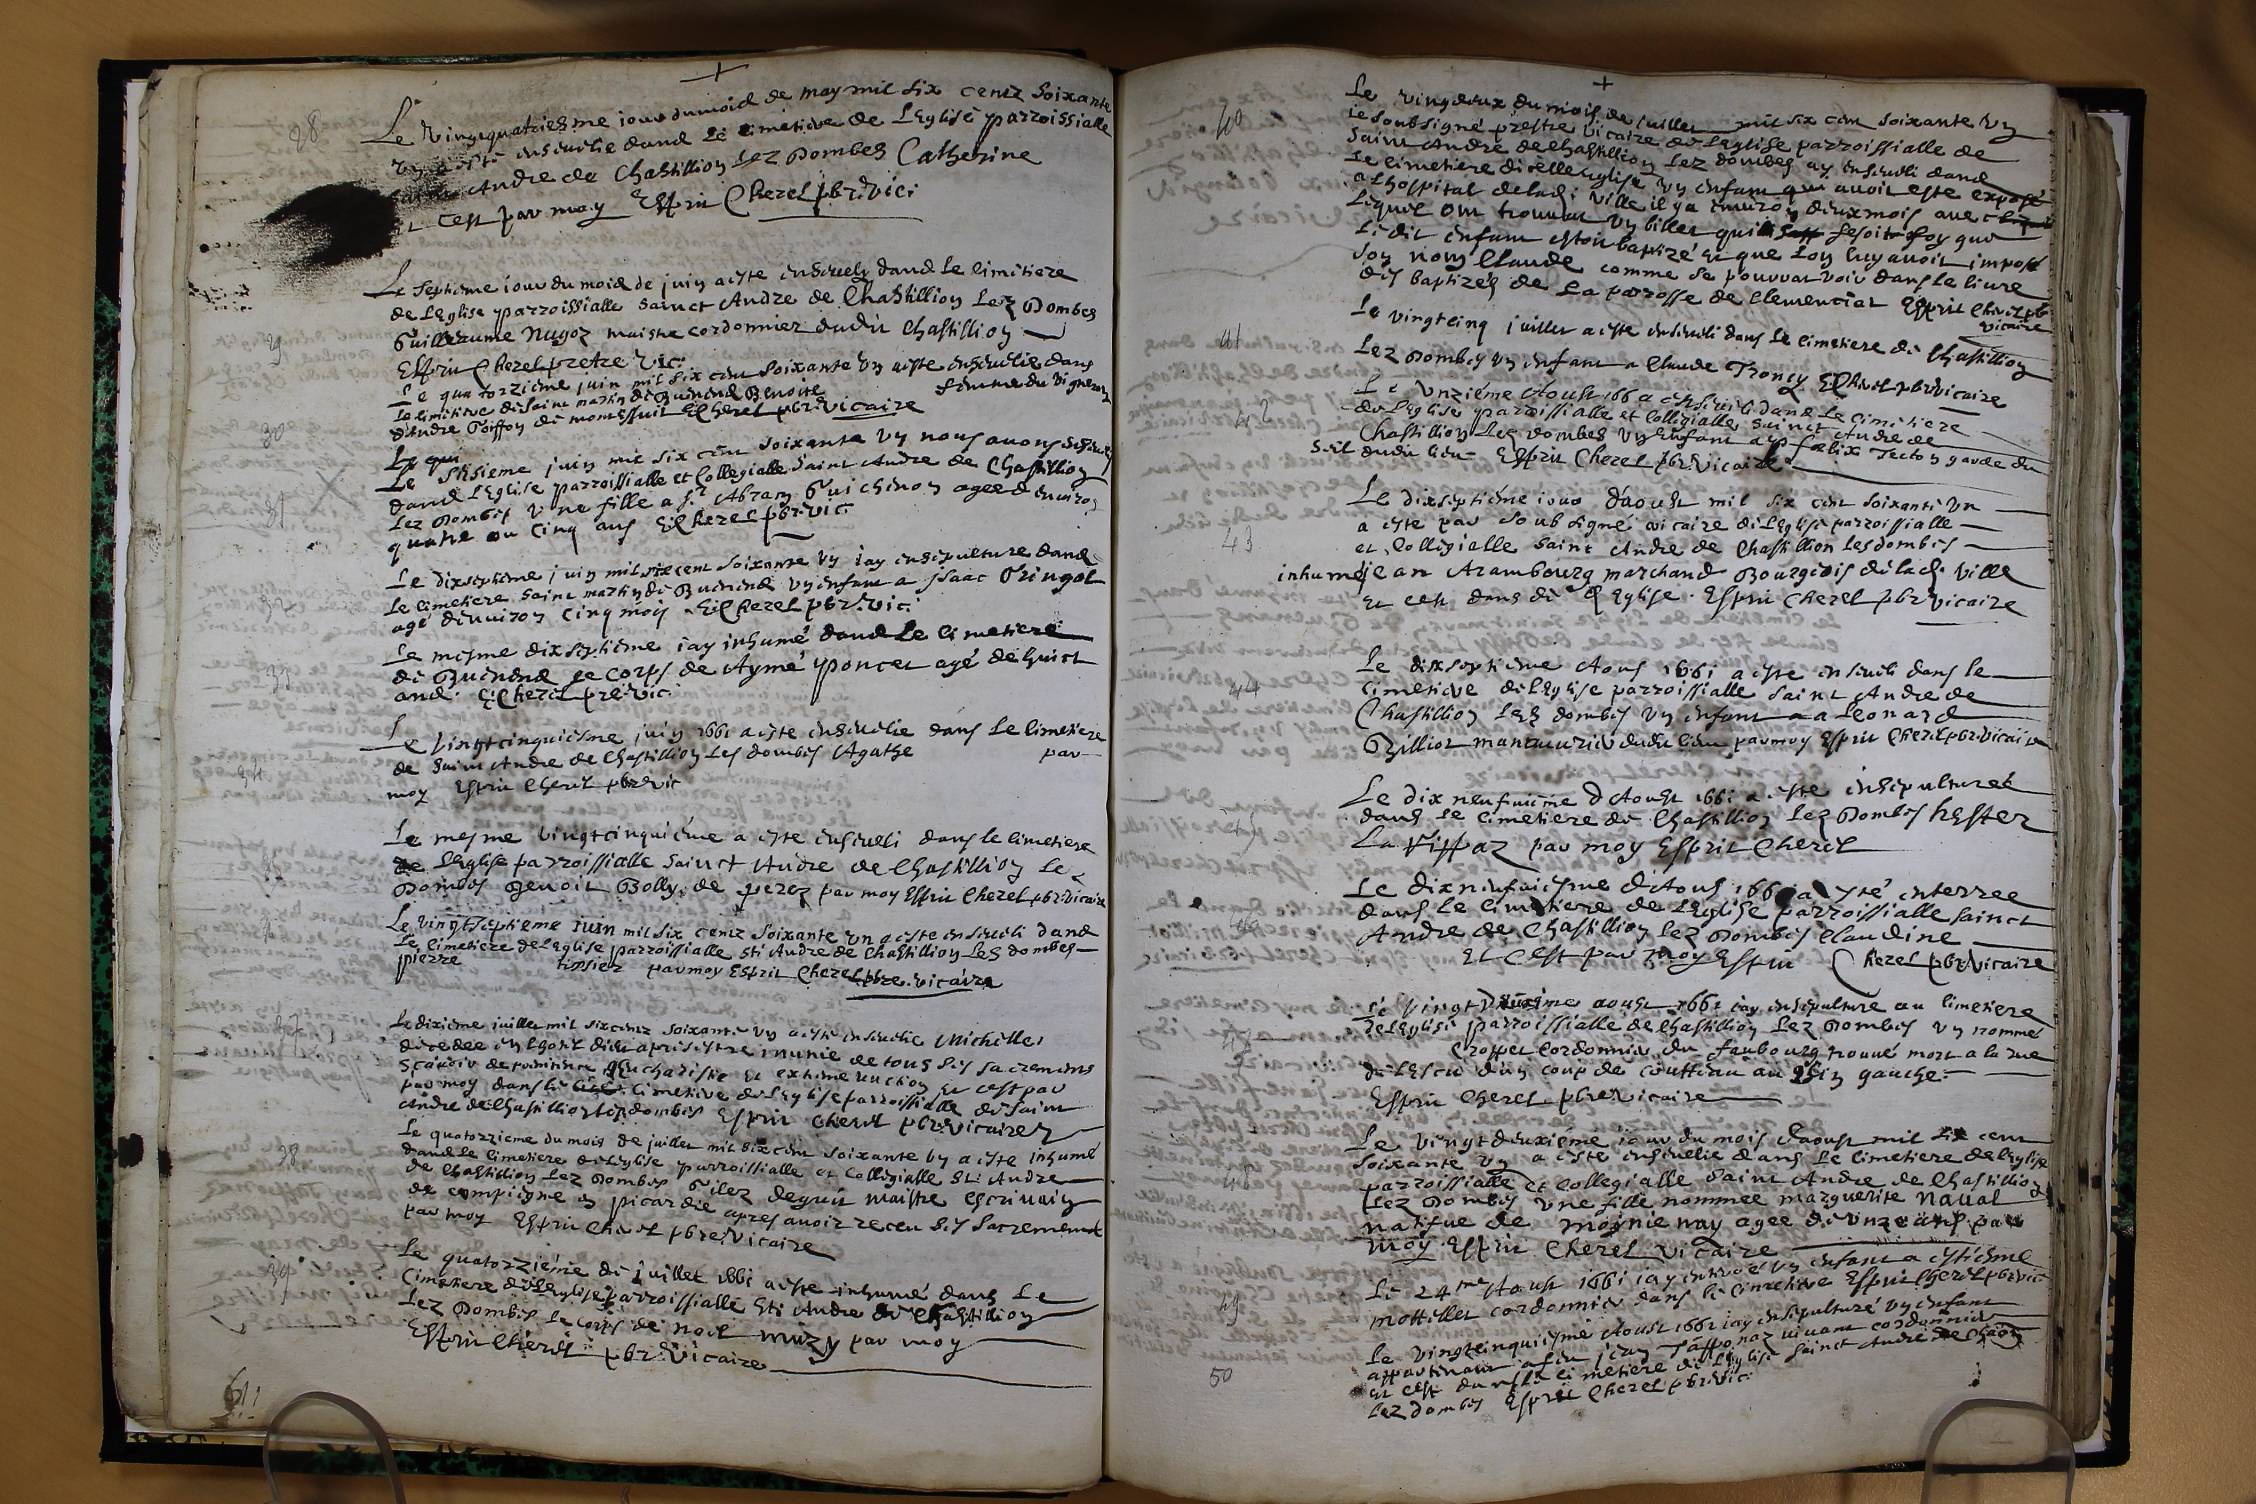 28
Le vingtquatriesme iour du mois de may mil six centz soixante
vn a esté enseuelie dans le cimetiere de L'Eglise parroissialle
Andre de Chastillion Lez Dombes Catherine
et cest par moy Esprit Cherel pbr. vic:
29
Le septieme iour du mois de juin a este enseuely dans Le cimetiere
de L'Eglise parroissialle sainct Andre de Chastillion Lez Dombes
Guillaume Nugoz maistre cordonnier dudit Chastillion
Esprit Cherel pretre vic:
30
Le quatorzieme juin mil six cent soixante vn a este enseuelie dans
Le cimetiere de saint martin de Buenend Benoite femme du vigneron
d'Andre Poiffon de montessuit E Cherel pbr. vicaire
31
Le qui
Le sisieme juin mil six cent soixante vn nous auons enseuely
dans L'Eglise parroissialle et Collegialle Saint Andre de Chastillion
Lez Dombes vne fille a Sr Abram Guichenon agee d'enuiron
quatre ou cinq ans E Cherel pbr. vic:
32
Le dixseptieme juin mil six cent soixante vn iay ensepulture dans
Le cimetiere saint martin de Buenend vn enfant a jsaac Pringol
agé d'enuiron cinq mois E Cherel pbr. vic:
33
Le mesme dixseptieme iay inhumé dans Le cimetiere
de Buenend le corps de Aymé Poncet agé de huict
ans. E Cherel pre. vic:
34
Le vingtcinquiesme juin 1661 a este enseuelie dans Le cimetiere
de saint Andre de Chastillion Les dombes Agathe par
moy Esprit Cherel pbr. vic
Le mesme vingtcinquiéme a este enseueli dans le cimetiere
de L'Eglise parroissialle sainct Andre de Chastillion Lez
Dombes Benoit Bolly de perez par moy Esprit Cherel pbr. vicaire
Le vingtseptieme juin mil six centz soixante vn a este enseueli dans
Le cimetiere de L'Eglise parroissialle St. Andre de Chastillion Les dombes
pierre tissier par moy Esprit Cherel pbre. vicaire
37
Le dixieme juillet mil six centz soixante vn a este enseuelie Michelle
decedee en L'hotel dieu apres estre munie de tous les sacremens
scauoir de penitence Eucharistie et extreme unction et cest par
par moy dans le cimetiere de L'Eglise parroissialle de saint
Andre de Chastillion Lez dombes Esprit Cherel pbr. vicaire
38
Le quatorzieme du mois de juillet mil six cent soixante vn a este inhumé
dans Le cimetiere de L'Eglise parroissialle et Collegialle St. Andre
de Chastillion Lez Dombes Gilez maistre Escriuain
de compiegne en picardie apres auoir receu les sacremens
par moy Esprit Cherel pbre. vicaire
39
Le quatorziéme de juillet 1661 a este inhumé dans Le
Cimetiere de L'Eglise parroissialle St. Andre de Chastillion
Lez Dombes Le corps de Noel muzy par moy
Esprit Cherel pbr. vicaire
40
Le vingdeux du mois de juillet mil six cen soixante vn
ie soubsigné prestre vicaire de L'Eglise parroissialle de
saint Andre de Chastillion Lez dombes ay enseueli dans
Le cimetiere d'icelle Eglise vn enfant qui auoit este exposé
a L'hospital de lad. ville il y a enuiron deux mois auec
Lequel on trouuat vn billet qui fesoit foy que
Ledit enfant estoit baptizé et que Lon luy auoit imposé
son nom Claude comme se pouuat voir dans Le liure
des baptizés de La parrosse de Clemenciat Esprit Cherel pb
vicaire
41
Le vingtcinq juillet a este enseueli dans Le cimetiere de Chastillion
Lez Dombes vn enfant a Claude Troncy E Cherel pbr. vicaire
42
Le vnziéme Aoust 166 a este enseueli dans Le cimetiere
de L'Eglise parroissialle et Collegialle Sainct Andre de
Chastillion Lez dombes vn Enfant a Foelix Tecton garde du
Sel dudit lieu Esprit Cherel pbr. vicaire
43
Le dixseptiéme iour d'aoust mil six cen soixante vn
a este par soubsigné vicaire de L'Eglise parroissialle
et Collegialle Saint Andre de Chastillion Les dombes
inhumé jean Arambourg marchand Bourgeois de lad. ville
et cest dans de L'Eglise. Esprit Cherel pbr. vicaire
44
Le dixseptieme Aous 1661 a este enseueli dans le
Cimetiere de L'Eglise parroissialle saint Andre de
Chastillion Lez dombes vn enfant a a Leonard
Billiot dudit lieu par moy Esprit Cherel pbr. vicaire
Le dix neufuieme d'Aoust 1661 a este ensepulturee
dans Le cimetiere de Chastillion Lez Dombes hester
La Fiffaz par moy Esprit Cherel
46
Le dixneufuiesme d'Aous 1661 a esté enterree
dans Le cimetiere de L'Eglise parroissialle sainct
Andre de Chastillion Lez Dombes Claudine
et cest par moy Esprit Cherel pbr. vicaire
Le vingt aoust 1661 iay ensepulture au cimetiere
de L'Eglise parroissialle de Chastillion Lez Dombes vn nommé
Croppet Cordonnier du fauboug trouué mort a la rue
de L'Escu d'un coup de coutteau au sein gauche.
Esprit Cherel pbre. vicaire
48
Le vingtdeuxiéme iour du mois d'aoust mil six cent
soixante vn a este enseuelie dans Le cimetiere de L'Eglise
parroissialle et Collegialle Saint Andre de Chastillion
Lez Dombes vne fille nommee marguerite Naual
natifue de moynienay agee de vnze ans par
moy Esprit Cherel vicaire
49
Le 24me Aoust 1661 iay enterré vn enfant a estiesme
mottillet cordonnier dans Le cimetiere Esprit Cherel pbr. vic
50
Le vingtcinquiesme Aoust 1661 iay ensepulturé vn enfant
appartenant a feu jean Tapponaz viuant cordonnier
et cest dans Le cimetiere de L'Eglise sainct Andre de Chaon
Lez dombes Esprit Cherel pbr. vic: